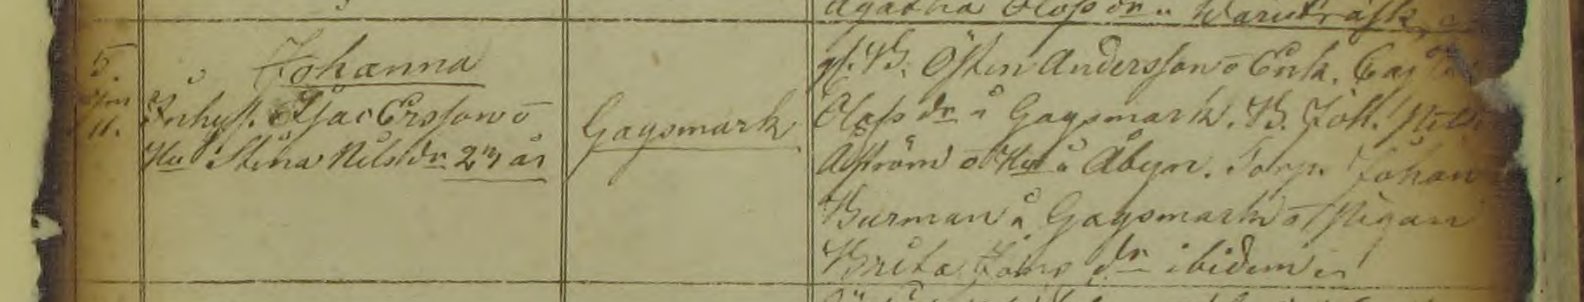 Agatha Olofsdr i Warutr­äsk
5.
11.
Johanna
Inhys. Isac Ersson o
Hu Stina Nilsdr 23 år
Gagsmark
gf. B. Östen Andersson o Enk. Caj
Olofsdr i Gagsmark. B. Joh. Nils
Åström o Hu i Åbyn. Torp. Johan
Burman i Gagsmark o Pigan
Brita Jonsdr ibidem